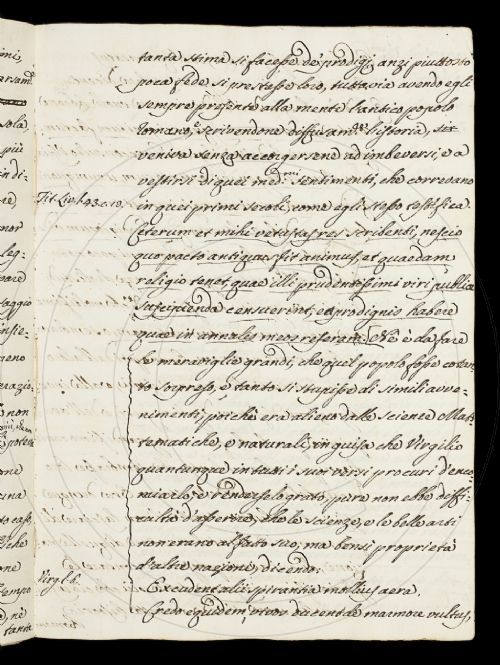 tanta stima si facesse de' prodigj, anzi piuttosto
poca fede si prestasse loro, tuttavia avendo egli
sempre presente alla mente l'antico popolo
romano, e scrivendone diffusam.te l'istoria,
veniva senza accorgersene ad imbeversi, e a
vestirsi di quei med.mi sentimenti, che correvano
Tit. Liv. l. 43. c. 13. in quei primi secoli, come egli stesso testifica
Ceterum et mihi vetustas res scribenti, nescio
quo pacto antiquus fit animus, et quaedam
religio tenet, quae illi prudentissimi viri publice
suscipienda censuerint, ea pro dignis habere
quae in annales meos referam. Nè è da fare
le meraviglie grandi, che quel popolo fosse cotan
to sorpreso, e tanto si stupisse di simili avve-
nimenti, poichè era alieno dalle scienze Mat-
tematiche, e naturali, in guisa che Virgilio
quantunque in tutti i suoi versi procuri d'enco
miarlo, e renderselo grato, pure non ebbe diffi-
coltà d'asserire, che le scienze, e le belle arti
non erano al fatto suo, ma bensì proprietà
d'altre nazioni, dicendo:
Virg. l. 6. Excudent alii spirantia mollius aera,
Credo equidem, vivos ducent de marmore vultus,